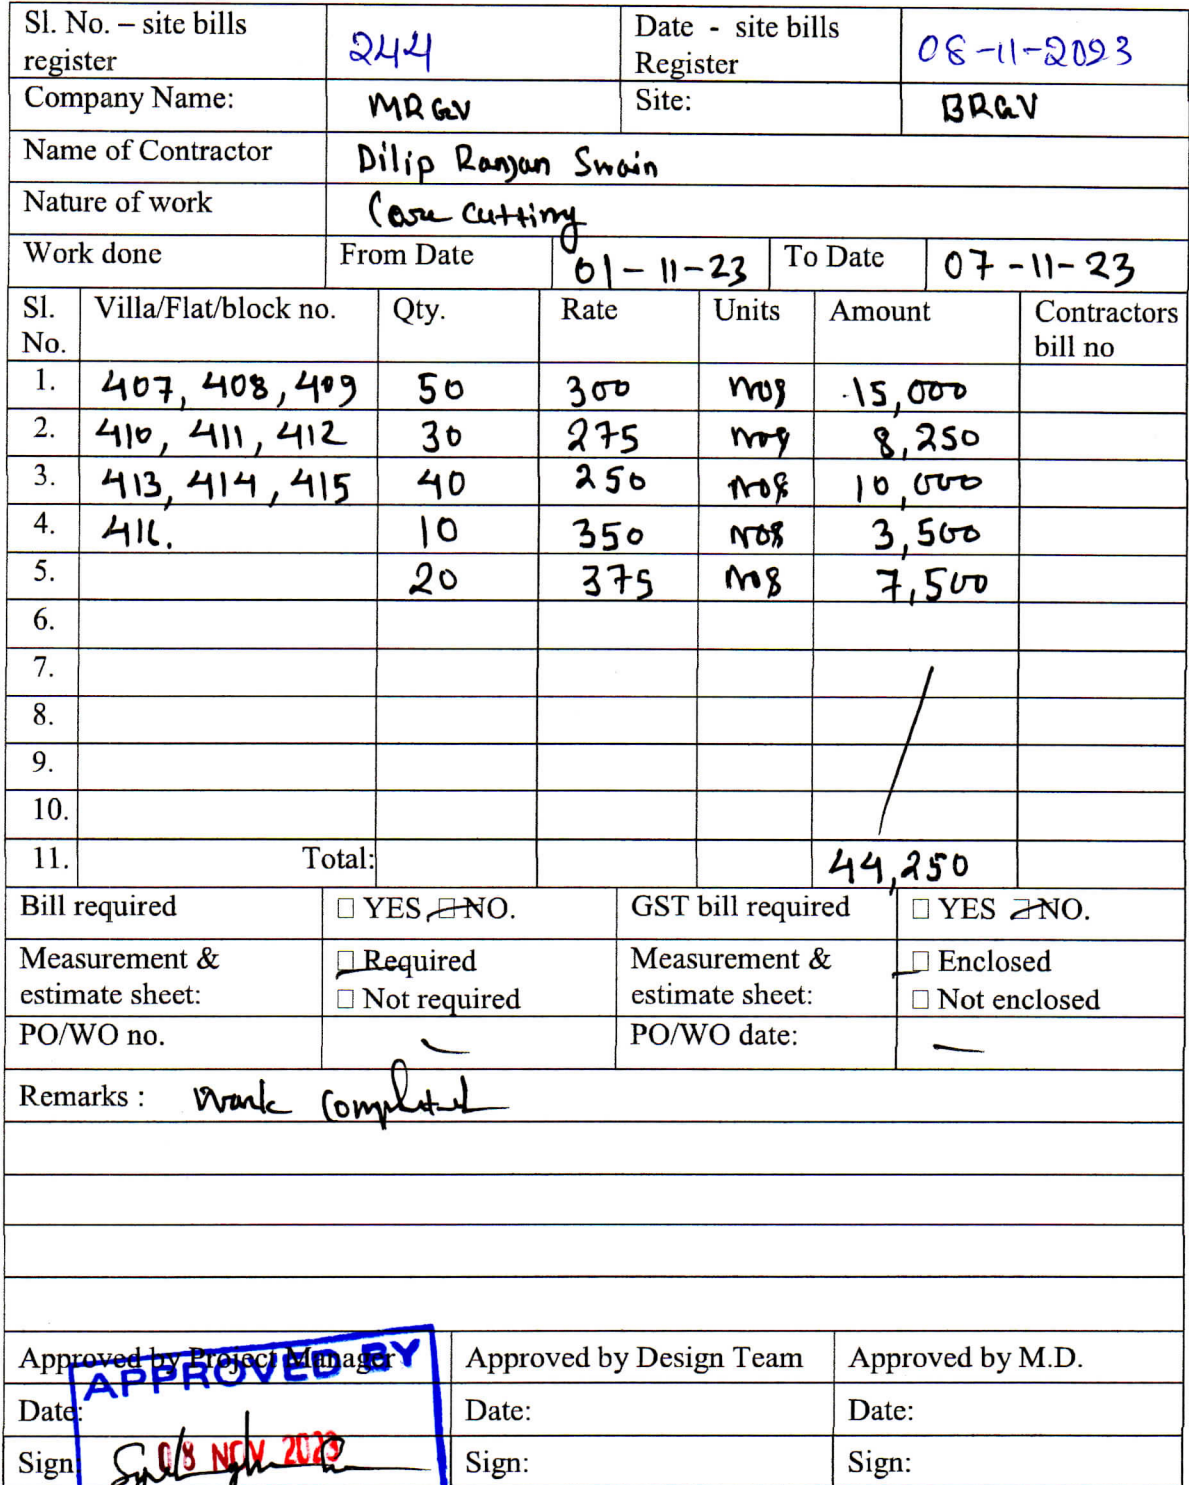 Sl. No. – site bills register 244 Date - site bills Register 08-11-2023
Company Name: MRGV Site: BRGV
Name of Contractor Dilip Ranjan Swain
Nature of work Core cutting
Work done From Date 01-11-23 To Date 07-11-23
Sl. No. Villa/Flat/block no. Qty. Rate Units Amount Contractors bill no
1. 407, 408, 409 50 300 nos 15,000
2. 410, 411, 412 30 275 nos 8,250
3. 413, 414, 415 40 250 nos 10,000
4. 416. 10 350 nos 3,500
5. 20 375 nos 7,500
6.
7.
8.
9.
10.
11. Total: 44,250
Bill required □ YES □ NO. GST bill required □ YES □ NO.
Measurement & estimate sheet: □ Required □ Not required Measurement & estimate sheet: □ Enclosed □ Not enclosed
PO/WO no. – PO/WO date: –
Remarks : Work Completed
Approved by Project Manager Approved by Design Team Approved by M.D.
APPROVED BY
Date: Date: Date:
08 NOV 2023
Sign Sign: Sign: